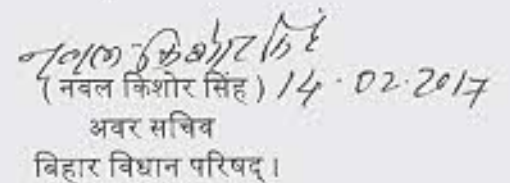 नवल किशोर सिंह
( नवल किशोर सिंह ) 14.02.2017
अवर सचिव
बिहार विधान परिषद् ।